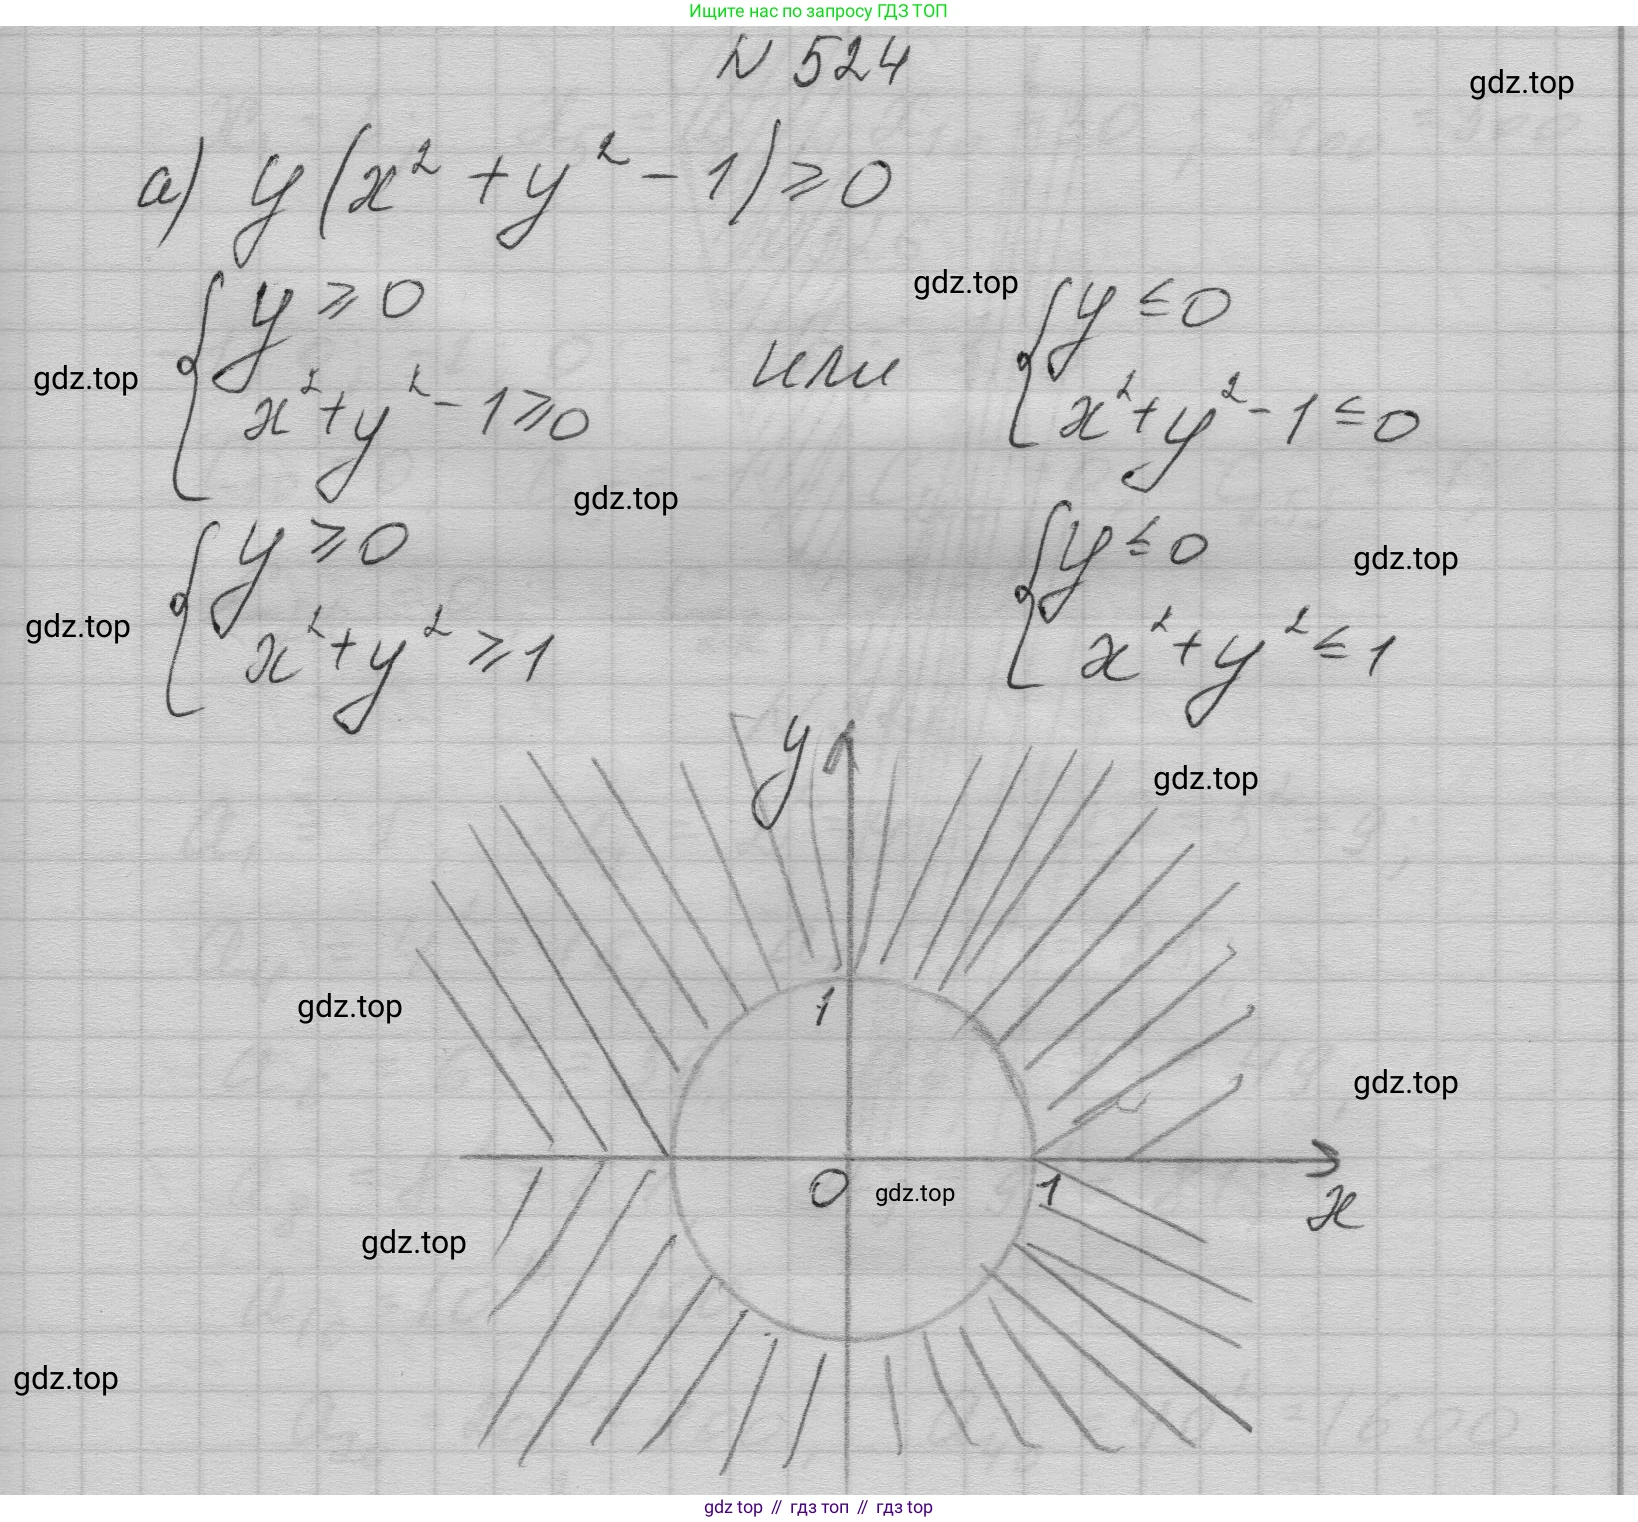 Ищите нас по запросу ГДЗ ТОП
N 524
gdz.top
а) y(x² + y² - 1) ≥ 0
gdz.top
{ y ≥ 0
x² + y² - 1 ≥ 0
или
{ y ≤ 0
x² + y² - 1 ≤ 0
gdz.top
gdz.top
{ y ≥ 0
x² + y² ≥ 1
{ y ≤ 0
x² + y² ≤ 1
gdz.top
gdz.top
y
gdz.top
gdz.top
1
gdz.top
0
gdz.top
1
x
gdz.top
gdz.top
gdz top // гдз топ // гдз top